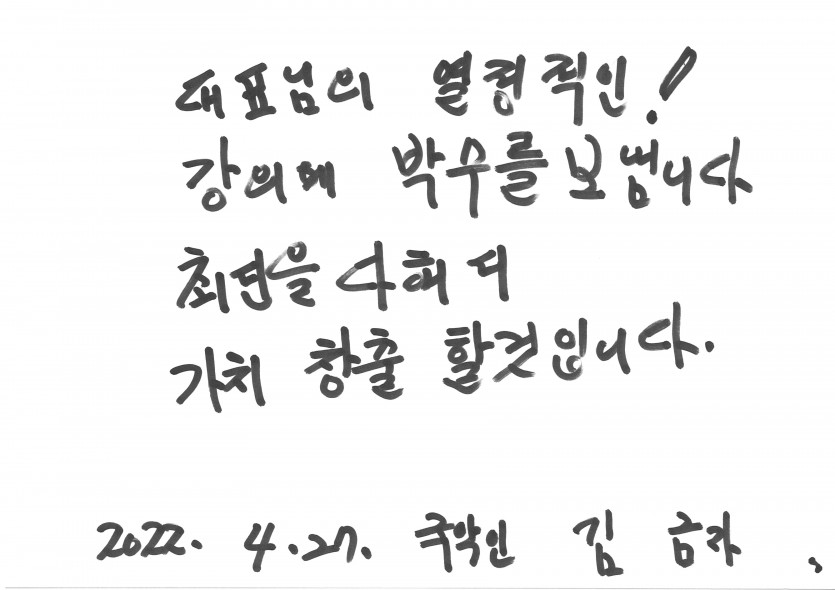 대표님의 열정적인!
강의에 박수를 보냅니다
최선을 다해서
가치 창출 할것입니다.
2022. 4.27. 국악인 김 금자